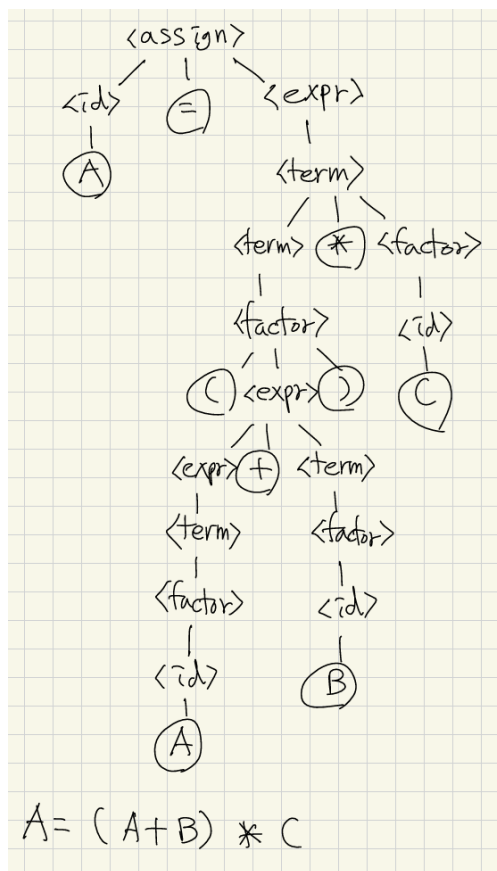 <assign>
<id> = <expr>
A
<term>
<term> * <factor>
<factor> <id>
( <expr> ) C
<expr> + <term>
<term> <factor>
<factor> <id>
<id> B
A
A= (A+B) * C